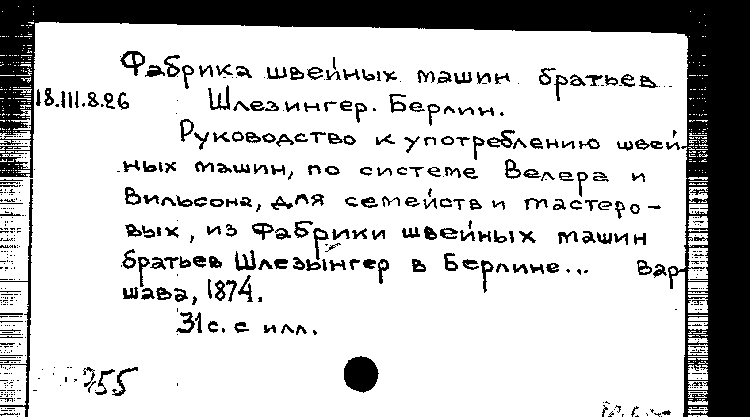 Фабрика швейных машин братьев
18.III.8.26 Шлезингер. Берлин.
Руководство к употреблению швей-
ных машин, по системе Велера и
Вильсона, для семейств и мастеро-
вых, из Фабрики швейных машин
братьев Шлезынгер в Берлине... Вар-
шава, 1874.
31 с. с илл.
955